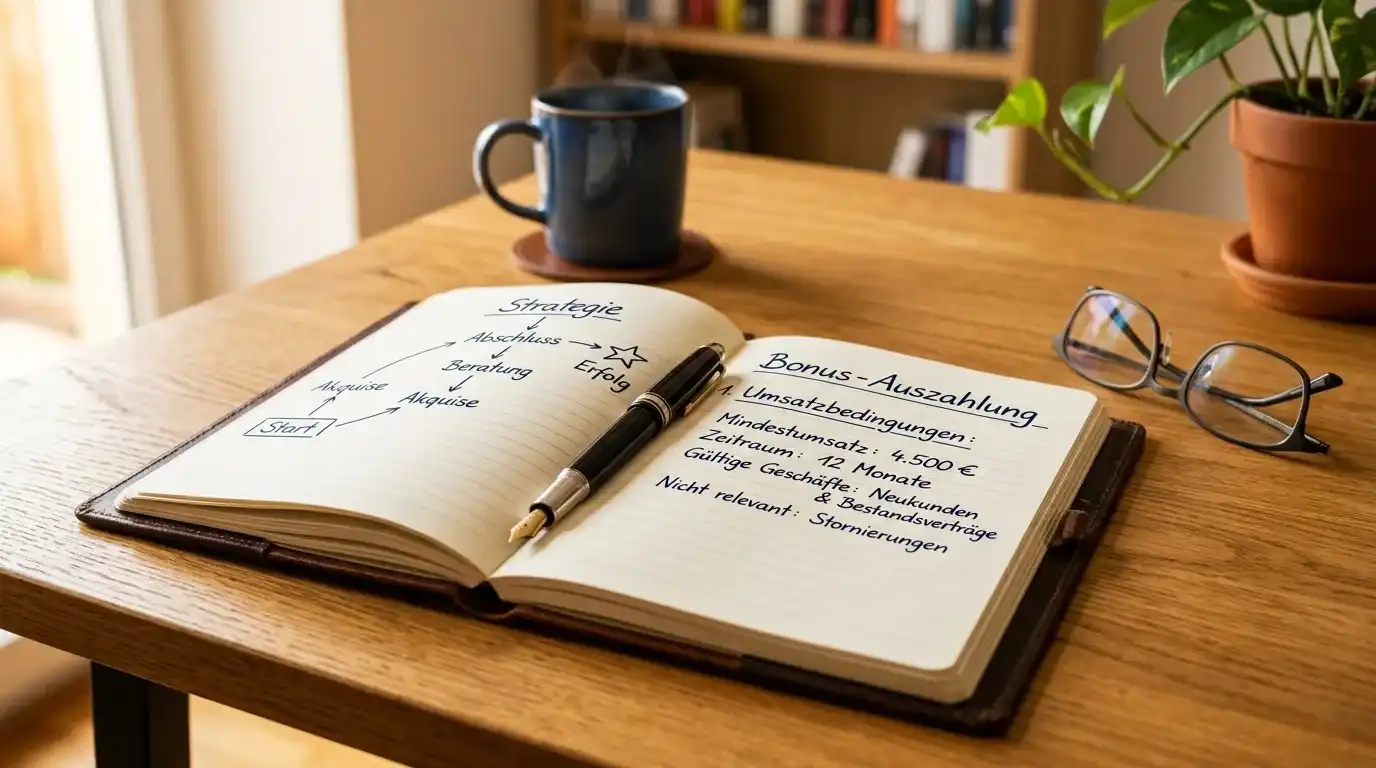 Strategie
Abschluss
Erfolg
Beratung
Akquise
Akquise
Start
Bonus-Auszahlung
1. Umsatzbedingungen:
Mindestumsatz: 4.500 €
Zeitraum: 12 Monate
Gültige Geschäfte: Neukunden
& Bestandsverträge
Nicht relevant: Stornierungen